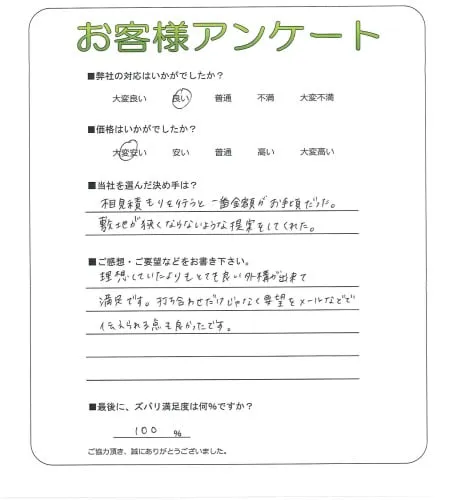 お客様アンケート
■弊社の対応はいかがでしたか？
大変良い 良い 普通 不満 大変不満
■価格はいかがでしたか？
大変安い 安い 普通 高い 大変高い
■当社を選んだ決め手は？
相見積もりを行うと一番金額がお手頃だった。
敷地が狭くならないような提案をしてくれた。
■ご感想・ご要望などをお書き下さい。
理想していたよりもとても良い外構が出来て
満足です。打ち合わせだけじゃなく要望をメールなどで
伝えられる点も良かったです。
■最後に、ズバリ満足度は何%ですか？
100 %
ご協力頂き、誠にありがとうございました。